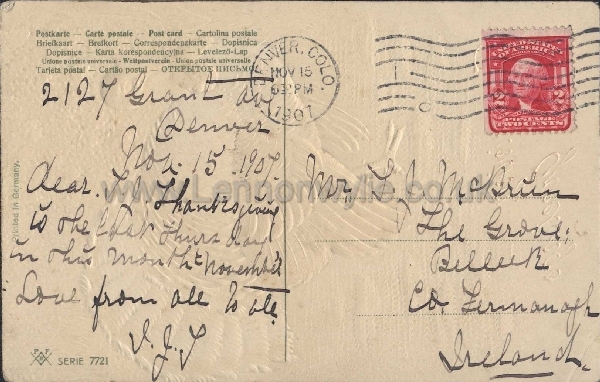 Postkarte — Carte postale — Post card — Cartolina postale
Brielkaart — Brefkort — Correspondenzkarte — Dopisnica
Dopisnice — Karta korespondencyjna — Levelező-Lap
Unione postale universale - Weltpostverein - Union postale universelle
Tarjeta postal — Cartão postal — ОТКРЫТОЕ ПИСЬМО
2127 Grant Av
Denver
Nov. 15. 1907.
dear. Thanksgiving
is the last Thursday
in this month November
Love from all to all
Printed in Germany.
SERIE 7721
DENVER, COLO.
NOV 15
PM
1907
UNITED STATES
OF AMERICA
2 2
POSTAGE
TWO CENTS
Mr
The Grove,
Belleek
Co. Fermanagh
Ireland.
www.Lennonwylie.co.uk